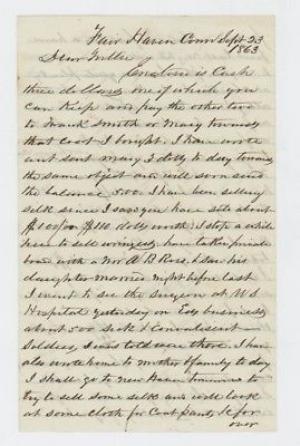 Fair Haven Conn Sept 23
1863
Dear Willie
Enclose is Cash
three dollars one of which you
can Keep and pay the other two
to Frank Smith or Mary towards
that Coat I bought. I have wrote
and sent Mary 3 dolls to day towards
the same object and will soon send
the balance 5.00. I have been selling
silk since I saw you have sold about
worth. I stop a while
here to sell wringers, have taken private
board with a Mr A B Rose, & saw his
daughter married night before last
I went to see the surgeon at U S
Hospital yesterday on business
about 500 Sick & Convalescent
Soldiers, I was told were there. I have
also wrote home to mother & family to day
I shall go to New Haven tomorrow to
try to sell some silk and will look
at some cloth for Coat pants &c for
over